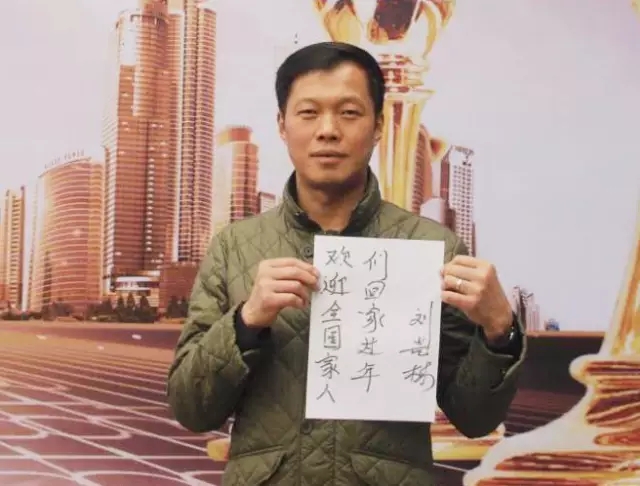 欢迎全国家人
们回家过年
刘